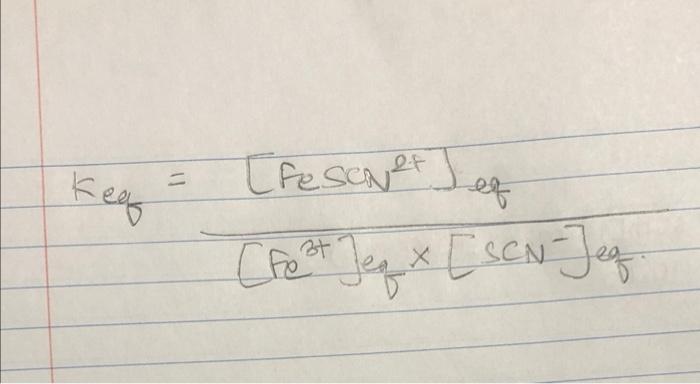 Keq = [FeSCN²⁺]eq
[Fe³⁺]eq × [SCN⁻]eq.